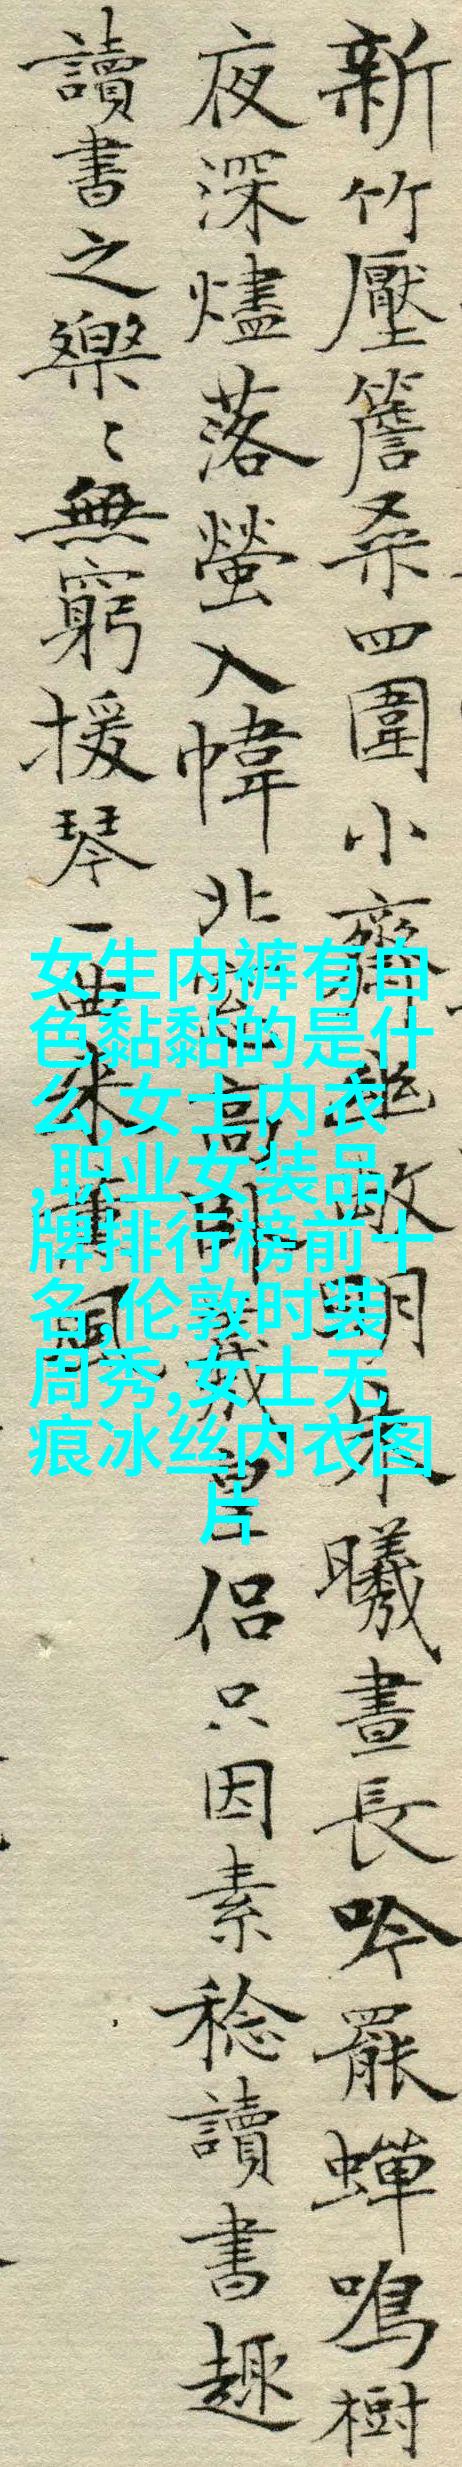 新竹壓簷桑四圍小齋幽敞明朱曦晝長吟罷蟬鳴樹
夜深燼落螢入幃北窗高臥羲皇侶只因素稔讀書趣
讀書之樂〻無窮援琴一曲來薰風
女生内裤有白
色黏黏的是什
么,女士内衣
,职业女装品
牌排行榜前十
名,伦敦时装
周秀,女士无
痕冰丝内衣图
片